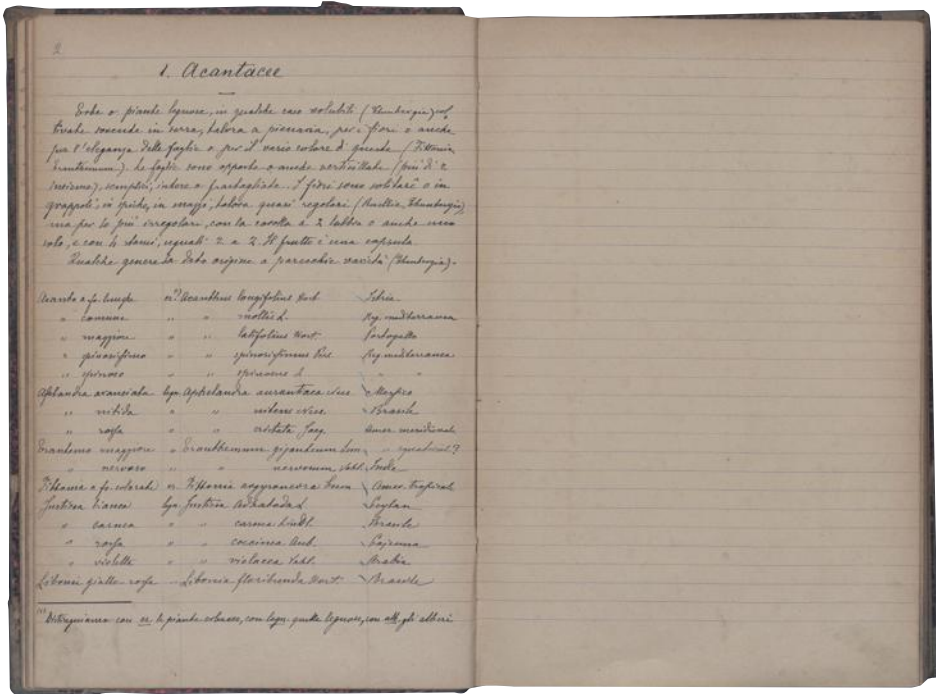 2
1. Acantacee
Erbe o piante legnose, in qualche caso volubili (Thunbergia) col
tivate sovente in serra, talora a pienaria, per i fiori o anche
per l'eleganza delle foglie o per il vario colore di queste (Fittonia
Erantemum). Le foglie sono opposte o anche verticillate (più di 2
insieme), semplici, intere o frastagliate. I fiori sono solitarî o in
grappoli, in spighe, in mazzi, talora quasi regolari (Ruellia, Thunbergia),
ma per lo più irregolari, con la corolla a 2 labbra o anche uno
solo, e con 4 stami, uguali 2 a 2. Il frutto è una capsula.
Qualche genere ha dato origine a parecchie varietà (Thunbergia).
Acanto a fo. lunghe er. Acanthus longifolius Host. Istria
" comune " " mollis L. Reg. mediterranea
" maggiore " " latifolius Hort. Portogallo
" spinosissimo " " spinosissimus Pers. Reg. mediterranea
" spinoso " " spinosus L. " "
Afelandra aranciata legn. Aphelandra aurantiaca Messico
" nitida " " nitens Brasile
" rossa " " cristata Jacq. Amer. meridionale
Erantemo maggiore " Eranthemum giganteum " equatorial?
" nervoso " " nervosum Vahl. India
Fittonia a fo. colorate er. Fittonia argyroneura Amer. tropicale
Justicia bianca legn. Justicia Adhatoda L. Ceylan
" carnea " " carnea Lindl. Brasile
" rossa " " coccinea Aub. Cajenna
" violetta " " violacea Vahl. Arabia
Libonia giallo-rossa " Libonia floribunda Hort. Brasile
Distinguiamo con er. le piante erbacee, con legn. quelle legnose, con alb. gli alberi